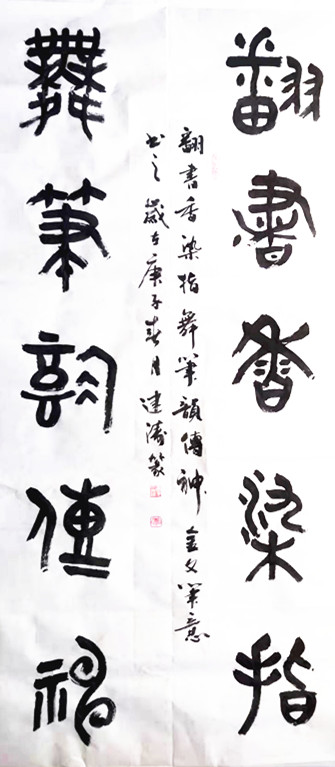 翻書香染指
舞筆韻傳神
翻書香染指舞筆韻傳神 金文筆意
書之歲在庚子春月建濤篆